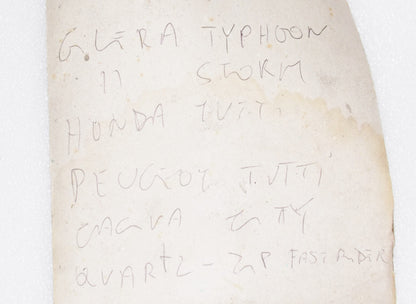 GILERA TYPHOON
" STORM
HONDA TUTTI
PEUGEOT TUTTI
CAGIVA CITY
QUARTZ - ZIP FASTRIDER